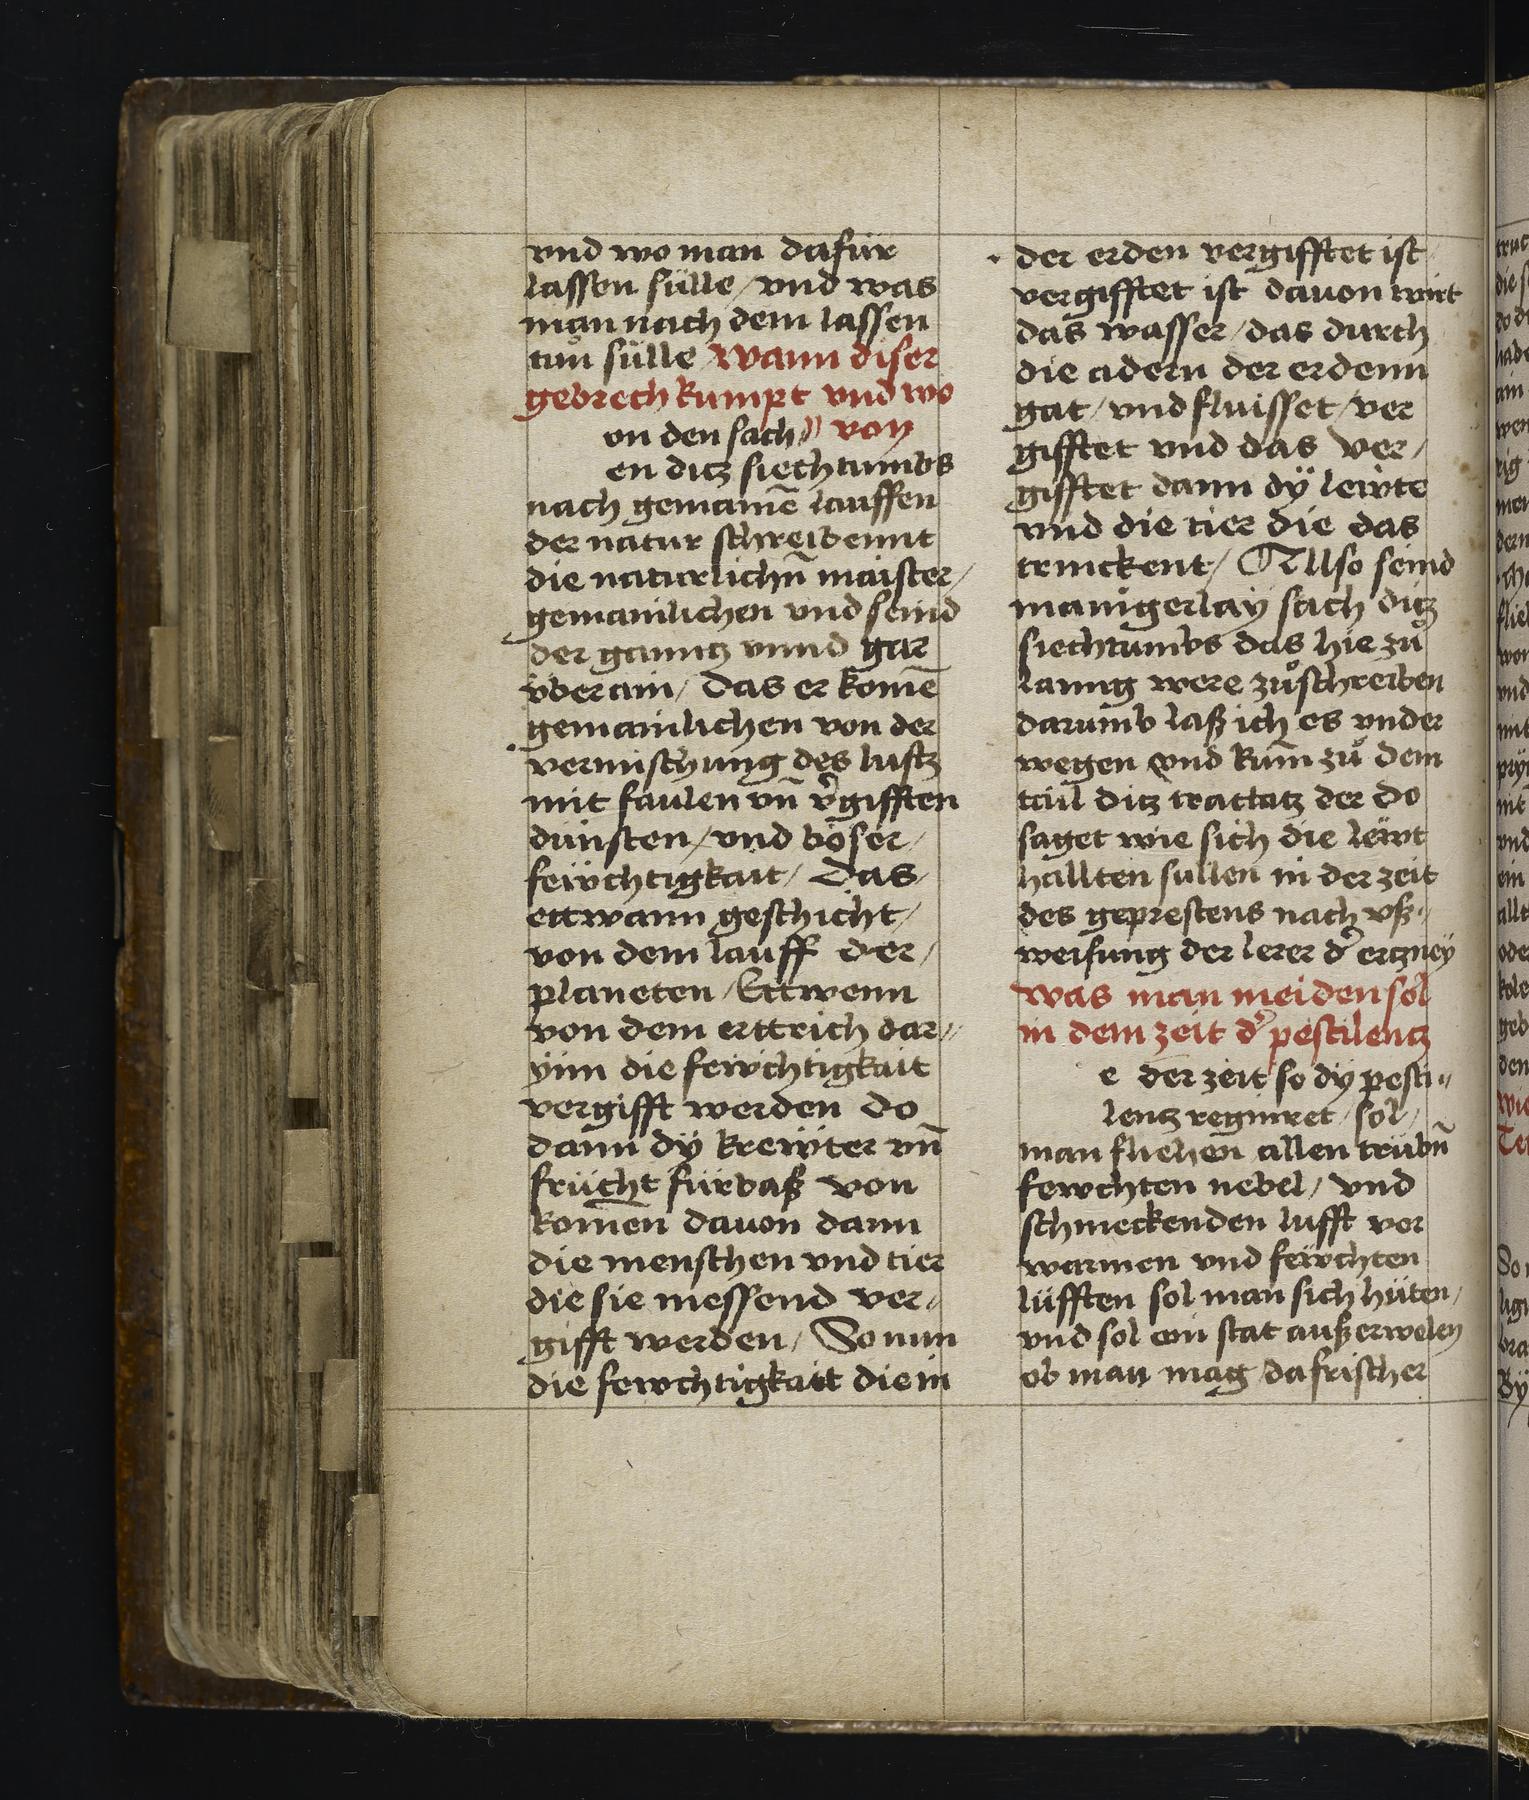 vnd wo man dafür
lassen sülle / vnd was
man nach dem lassen
tun sülle / wann diser
gebrech kumpt vnd wo
on den sach⸗ von
en ditz siechtumbs
nach gemainē lauffen
der natur schreibennt
die naturlichn̄ maister /
gemainlichen vnd seind
der ganntz vnnd gar
v̈berain / das er komē
gemainlichen von der
vermischung des luftz
mit faulen vn̄ v̉gifften
dünsten / vnd böser /
feẅchtigkait / das /
ettwann geschicht /
von dem lauff der /
planeten / Ettwenn
von dem erttrich dar⸗
ÿnn die feẅchtigkait
vergifft werden do
dann dÿ kreẅter vn̄
frücht fürbaß von
komen dauon dann
die menschen vnd tier
die sie niessend ver⸗
gifft werden / So nun
die fewchtigkait die in
der erden vergifftet ist
vergifftet ist dauon wirt
das wasser / das durch
die adern der erdenn
gat / vnd fluisset / ver
gifftet vnd das ver /
gifftet dann dÿ leẅte
vnd die tier die das
trinckent / Allso seind
manigerlaÿ sach ditz
siechtumbs das hie zů
lanng were zůschreiben
darumb laß ich es vnder
wegen vnd kum̄ zů dem
tail ditz trattatz der do
saget wie sich die leẅt
hallten sullen in der zeit
des geprestens nach vß⸗
weisung der lerer d̉ ertzneÿ
was man meiden sol
in dem zeit d̉ pestilentz
e der zeit so dÿ pesti⸗
lentz regniret / sol /
man fliehen allen trübn̄
fewchten nebel / vnd
schmeckenden lufft vor
warmen vnd feẅchten
lüfften sol man sich hüten /
vnd sol ein stat außerwelen
ob man mag / da frischer